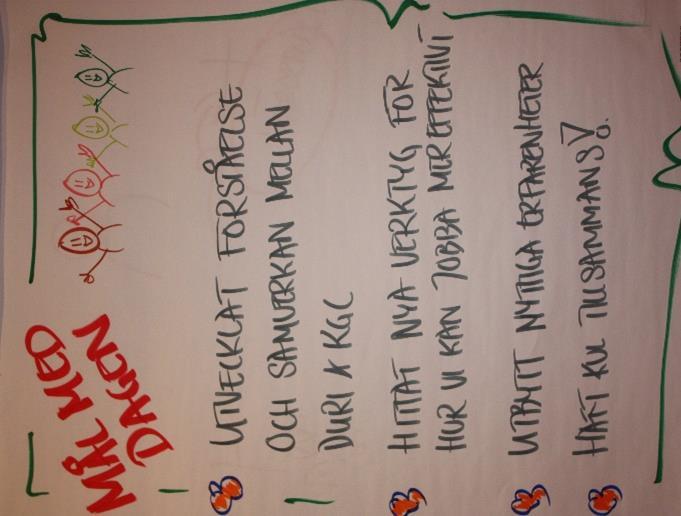 MÅL MED
DAGEN
UTVECKLAT FÖRSTÅELSE
OCH SAMVERKAN MELLAN
DURI & KGC
HITTAT NYA VERKTYG FÖR
HUR VI KAN JOBBA MER EFFEKTIVT
UTBYTT NYTTIGA ERFARENHETER
HAFT KUL TILLSAMMANS!